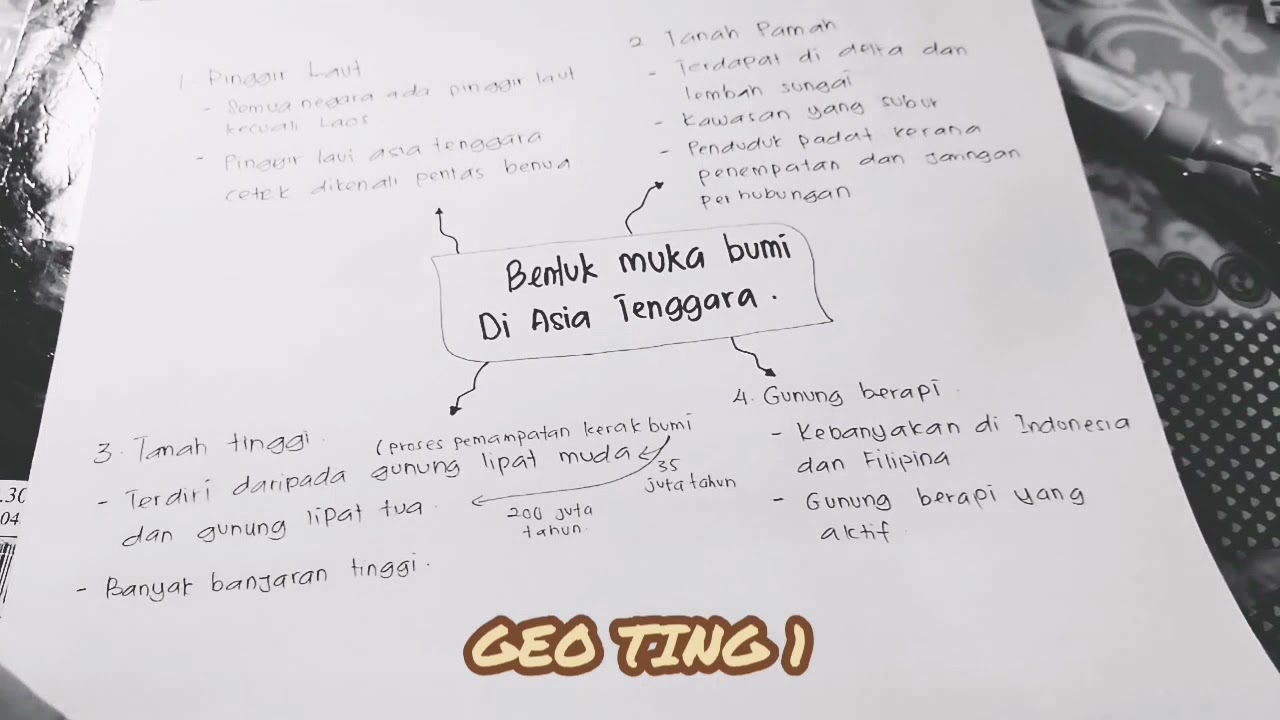 1. Pinggir Laut
- Semua negara ada pinggir laut
kecuali Laos
- Pinggir laut asia tenggara
cetek dikenali pentas benua
2 Tanah Pamah
- Terdapat di delta dan
lembah sungai
- Kawasan yang subur
- Penduduk padat kerana
penempatan dan jaringan
perhubungan
Bentuk muka bumi
Di Asia Tenggara.
3. Tanah tinggi.
(proses pemampatan kerak bumi
- Terdiri daripada gunung lipat muda
35
juta tahun
dan gunung lipat tua.
200 juta
tahun.
- Banyak banjaran tinggi.
4. Gunung berapi.
- Kebanyakan di Indonesia
dan Filipina
- Gunung berapi yang
aktif.
.30
04
GEO TING 1